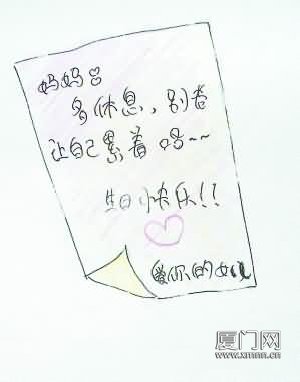 妈妈:
多休息,别老
让自己累着哈~~
生日快乐!!
爱你的女儿
厦门网
www.xmnn.cn